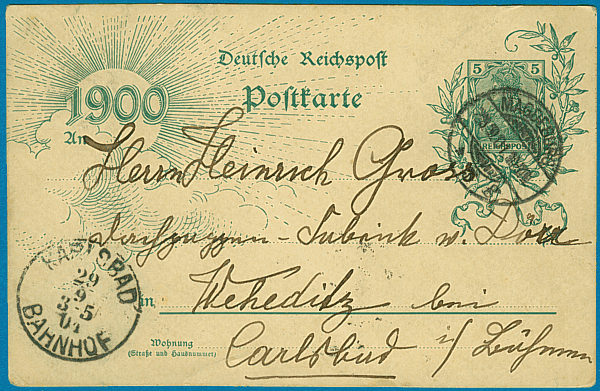 Deutsche Reichspost
5 5
1900
Postkarte
MAGDEBURG
REICHSPOST
An
Herrn Heinrich Gross
Fabrik
KARLSBAD
29
9
3-5
01
BAHNHOF
in Weheditz bei
Wohnung
(Straße und Hausnummer)
Carlsbad i/ Böhmen